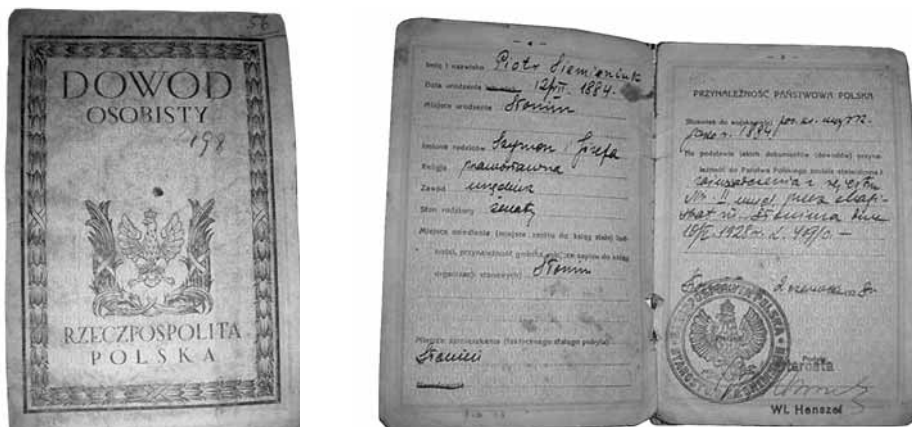 56
DOWOD
OSOBISTY
198
RZECZPOSPOLITA
POLSKA
Imię i nazwisko Piotr Siemieniuk
Data urodzenia 12/VII. 1884.
Miejsce urodzenia Słonim
Imiona rodziców Szymon i Józefa
Religja prawosławna
Zawód urzędnik
Stan rodzinny żonaty
Miejsce osiedlenia (miejsce zapisu do ksiąg stałej lud-
ności, przynależność gminna, miejsce zapisu do ksiąg
organizacji stanowych) Słonim
Miejsce zamieszkania (faktycznego stałego pobytu)
Słonim
PRZYNALEŻNOŚĆ PAŃSTWOWA POLSKA
Stosunek do wojskowości
r. 1884
Na podstawie jakich dokumentów (dowodów) przyna-
leżność do Państwa Polskiego została stwierdzona:
zaświadczenia z rejestru
przez Magi-
strat m. Słonima dnia
1928 r.
RZECZPOSPOLITA POLSKA
Starosta
Wl. Henszel